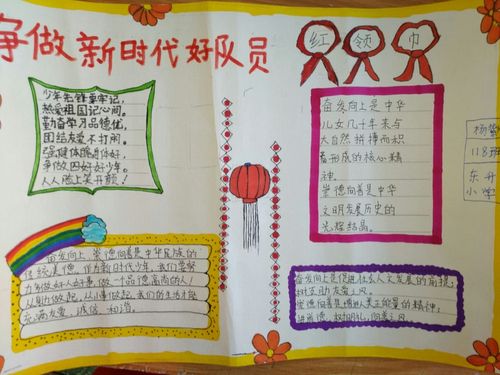 争做新时代好队员
红领巾
少年先锋要牢记，
热爱祖国记心间。
勤奋学习品德优，
团结友爱不打闹。
强健体魄进伴好，
争做四好好少年。
人人脸上笑开颜！
奋发向上是中华
儿女几千年来与
大自然拼搏而积
蓄形成的核心精
神。
崇德向善是中华
文明发展历史的
光辉结晶。
杨
118班
东升
小学
奋发向上、崇德向善是中华民族的
传统美德，作为新时代少年，我们要努
力多做好人好事，做一个品德高尚的人！
从自助做起，从小懂做起，我们的生活才能
充满友爱、诚信、和谐。
奋发向上是促进社会人文发展的前提，
树互助友爱之风。
崇德向善是增进美正能量的精神，
讲道德，树明礼，